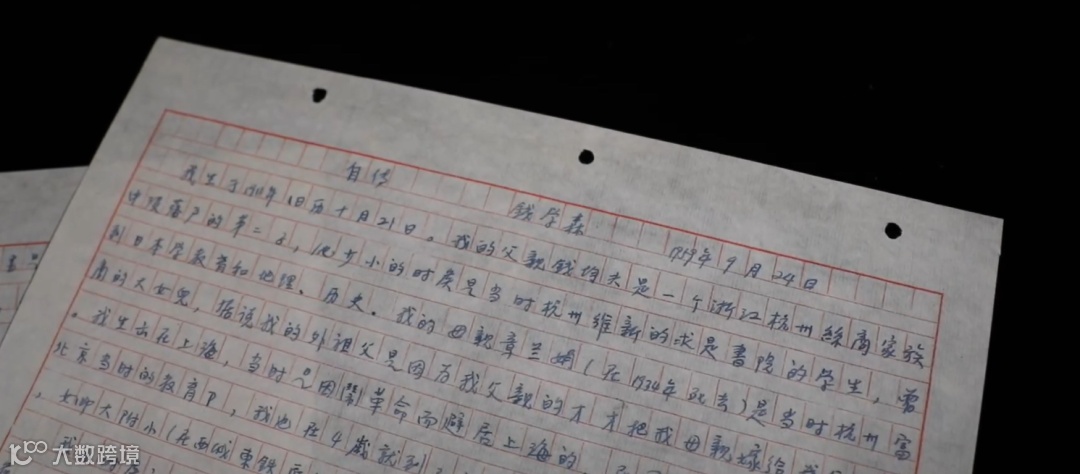 自传
钱学森 1959年9月24日
我生于1911年旧历十月21日。我的父亲钱均夫是一个浙江杭州丝商家族
中没落户的第二子,他少小的时候是当时杭州维新的求是书院的学生,曾
到日本学教育和地理、历史。我的母亲章兰娟(在1934年死去)是当时杭州富
商的大女儿,据说我的外祖父是因为我父亲的才,才把我母亲嫁给
。我生出在上海,当时是因闹革命而避居上海的
北京当时的教育P,我也在4歲就到
,女师大附小(在西城東鉄
我
大数跨境